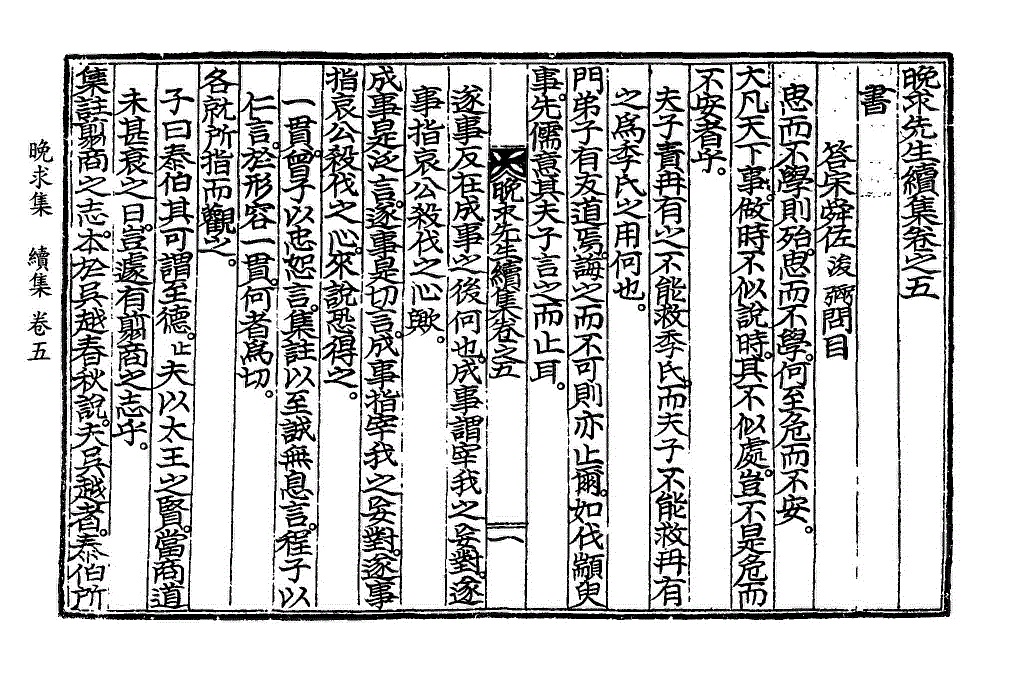 晩求先生續集卷之五
書
答宋舜佐浚弼問目
思而不學則殆。思而不學。何至危而不安。
大凡天下事。做時不似說時。其不似處。豈不是危而
不安者乎。
夫子責冉有之不能救季氏。而夫子不能救冉有
之爲季氏之用何也。
門弟子有友道焉。誨之而不可則亦止爾。如伐顓臾
事。先儒意其夫子言之而止耳。
晩求先生續集卷之五
一
遂事反在成事之後何也。成事謂宰我之妄對。遂
事指哀公殺伐之心歟。
成事是泛言。遂事是切言。成事指宰我之妄對。遂事
指哀公殺伐之心。來說恐得之。
一貫。曾子以忠恕言。集註以至誠無息言。程子以
仁言。於形容一貫。何者爲切。
各就所指而觀之。
子曰泰伯其可謂至德。止 夫以太王之賢。當商道
未甚衰之日。豈遽有翦商之志乎。
集註翦商之志。本於吳越春秋說。夫吳越者。泰伯所
晩求集 續集 卷五